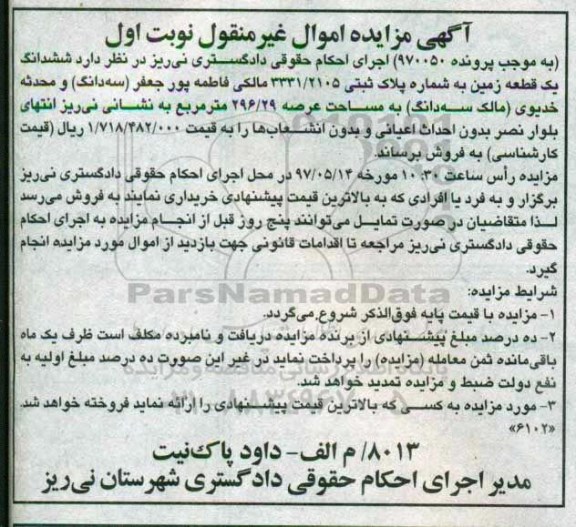 آگهی مزایده اموال غیرمنقول نوبت اول
(به موجب پرونده ۹۷۰۰۵۰) اجرای احکام حقوقی دادگستری نی‌ریز در نظر دارد ششدانگ
یک قطعه زمین به شماره پلاک ثبتی ۳۳۳۱/۲۱۰۵ مالکی فاطمه پور جعفر (سه‌دانگ) و محدثه
خدیوی (مالک سه‌دانگ) به مساحت عرصه ۲۹۶/۲۹ مترمربع به نشانی نی‌ریز انتهای
بلوار نصر بدون احداث اعیانی و بدون انشعاب‌ها را به قیمت ۱/۷۱۸/۴۸۲/۰۰۰ ریال (قیمت
کارشناسی) به فروش برساند.
مزایده رأس ساعت ۱۰:۳۰ مورخه ۹۷/۰۵/۱۴ در محل اجرای احکام حقوقی دادگستری نی‌ریز
برگزار و به فرد یا افرادی که به بالاترین قیمت پیشنهادی خریداری نمایند به فروش می‌رسد
لذا متقاضیان در صورت تمایل می‌توانند پنج روز قبل از انجام مزایده به اجرای احکام
حقوقی دادگستری نی‌ریز مراجعه تا اقدامات قانونی جهت بازدید از اموال مورد مزایده انجام
گیرد.
ParsNamadData
شرایط مزایده:
۱- مزایده با قیمت پایه فوق‌الذکر شروع می‌گردد.
۲- ده درصد مبلغ پیشنهادی از برنده مزایده دریافت و نامبرده مکلف است ظرف یک ماه
باقی‌مانده ثمن معامله (مزایده) را پرداخت نماید در غیر این صورت ده درصد مبلغ اولیه به
نفع دولت ضبط و مزایده تمدید خواهد شد.
۳- مورد مزایده به کسی که بالاترین قیمت پیشنهادی را ارائه نماید فروخته خواهد شد.
«۶۱۰۲»
۸۰۱۳/ م الف- داود پاک‌نیت
مدیر اجرای احکام حقوقی دادگستری شهرستان نی‌ریز